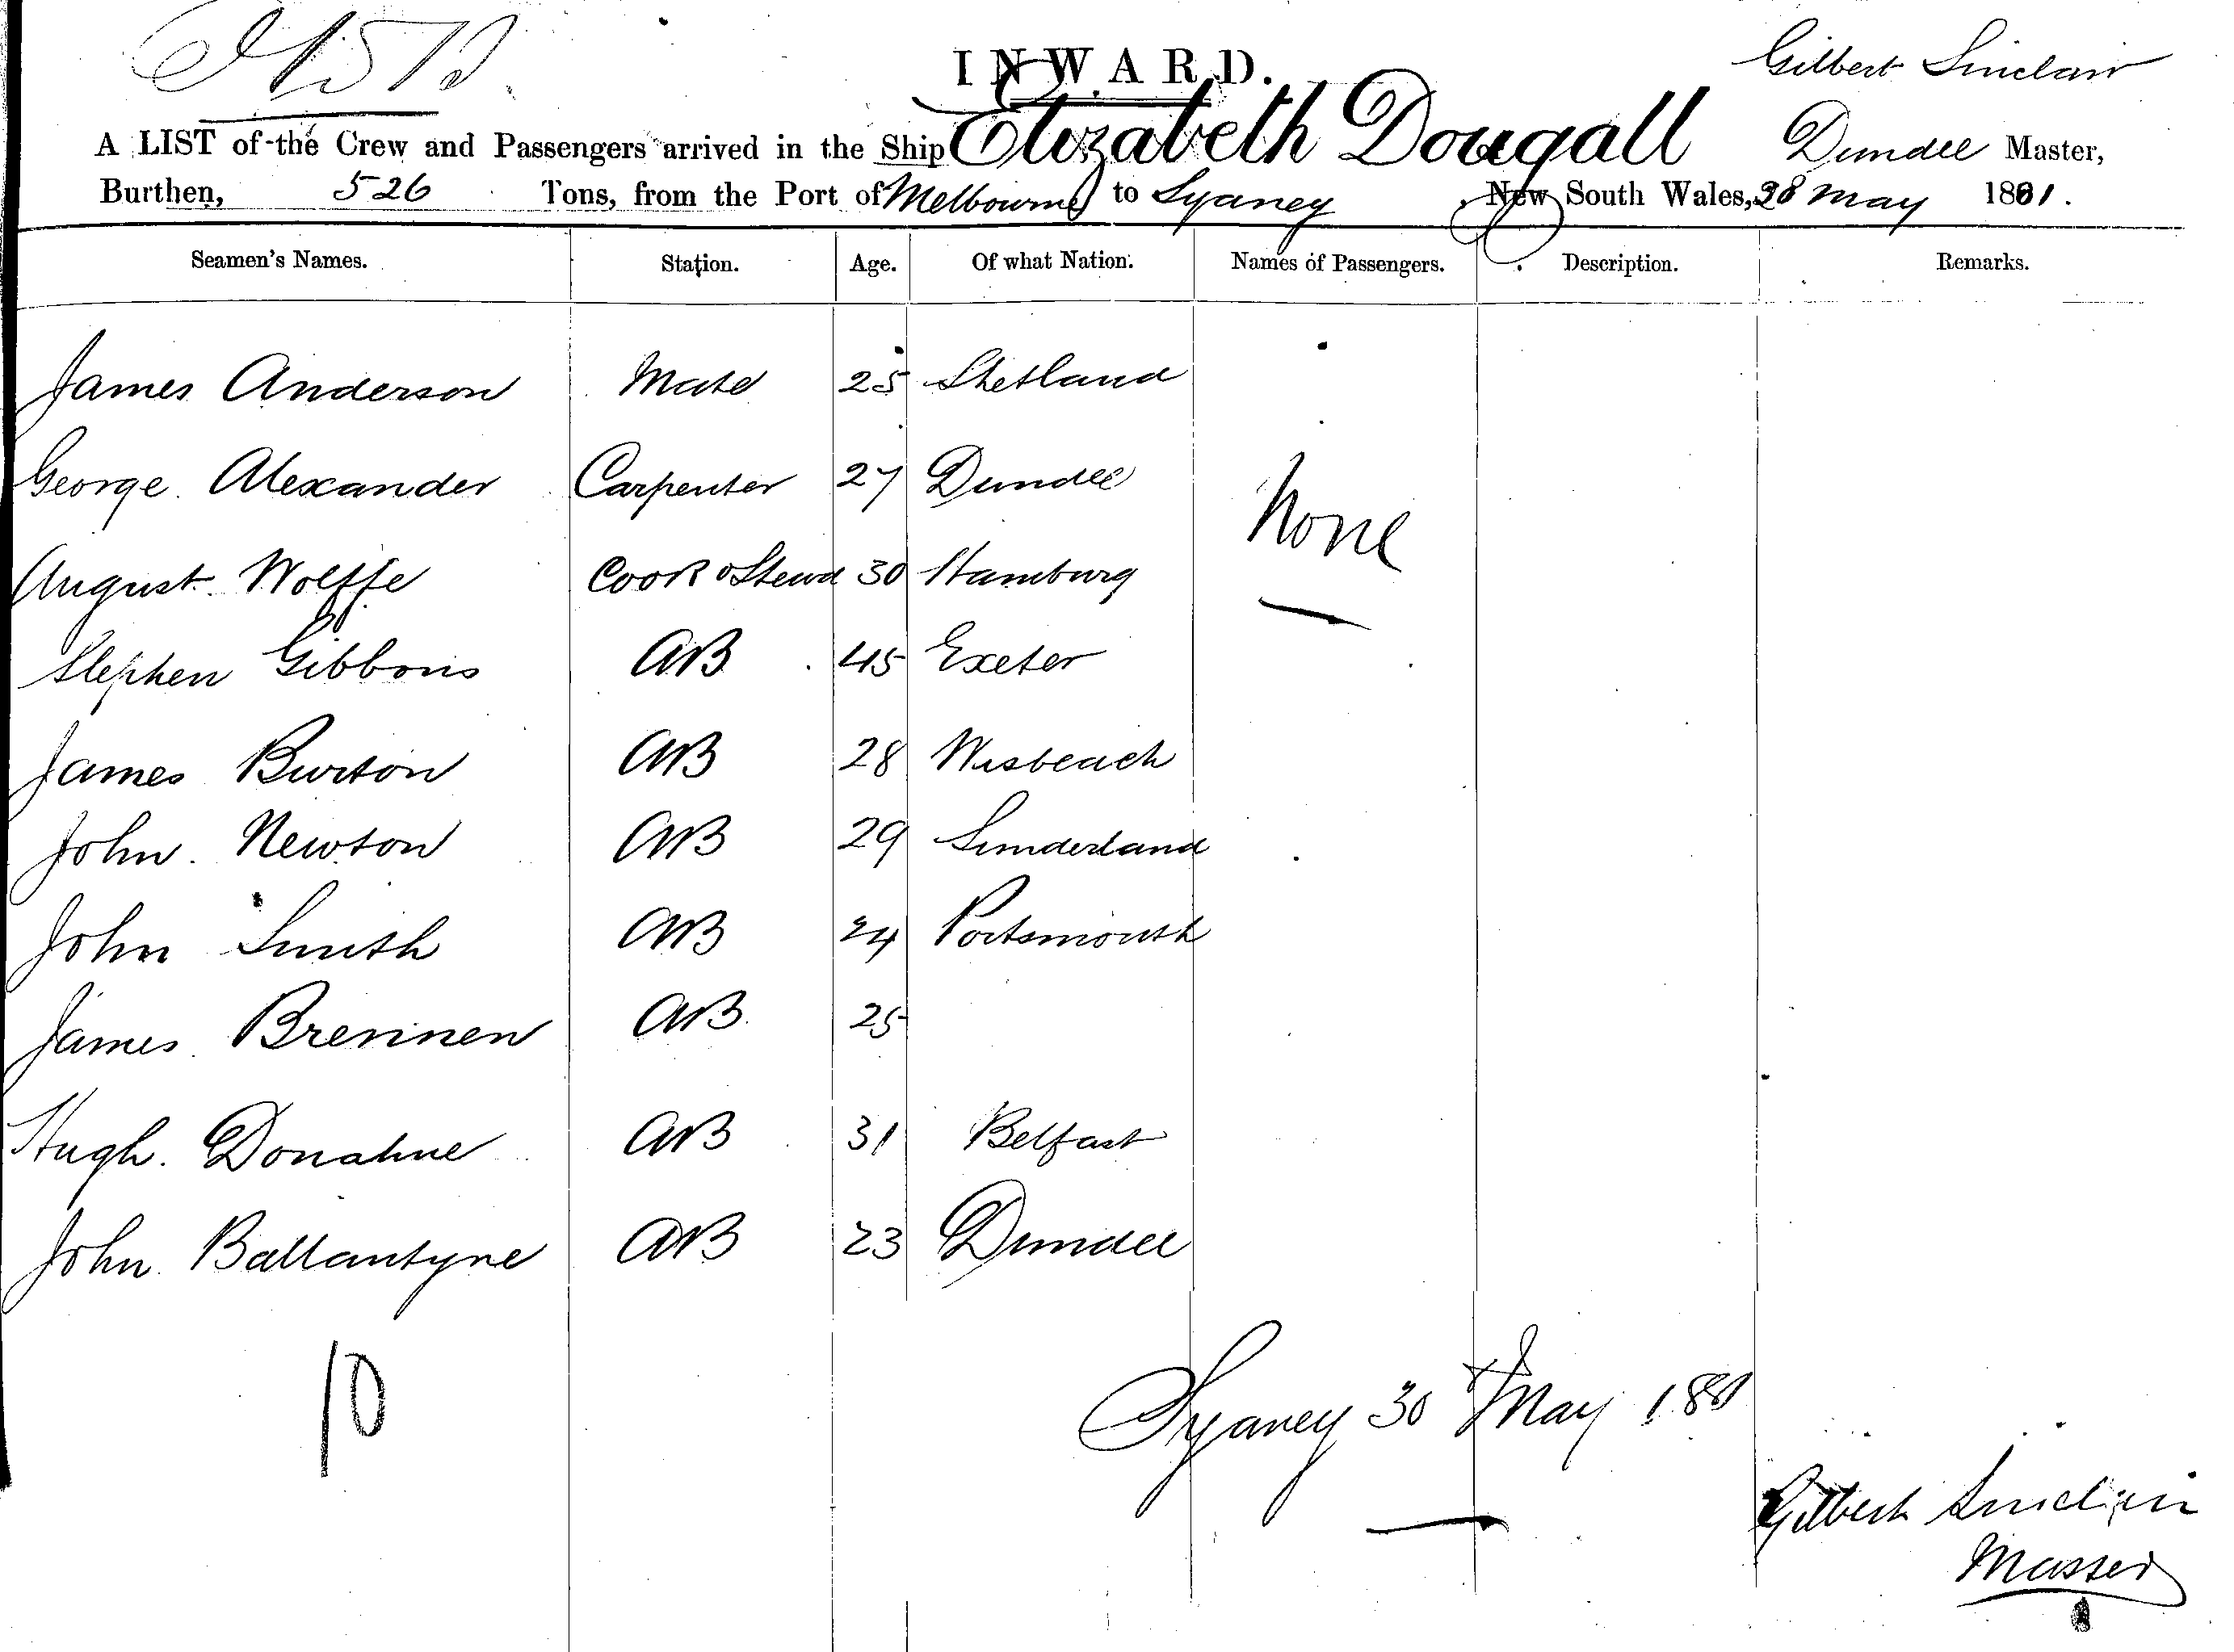 INWARD.
Gilbert Sinclair
A LIST of the Crew and Passengers arrived in the Ship Elizabeth Dougall Dundee Master,
Burthen, 526 Tons, from the Port of Melbourne to Sydney New South Wales, 28 May 1881.
Seamen's Names. Station. Age. Of what Nation. Names of Passengers. Description. Remarks.
James Anderson Mate 25 Shetland
George Alexander Carpenter 27 Dundee
None
August Wolffe Cook & Stewd 30 Hamburg
Stephen Gibbons AB 45 Exeter
James Burton AB 28 Wisbeach
John Newton AB 29 Sunderland
John Smith AB 24 Portsmouth
James Brennen AB 25
Hugh Donahue AB 31 Belfast
John Ballantyne AB 23 Dundee
10
Sydney 30 May 1881
Gilbert Sinclair
Master